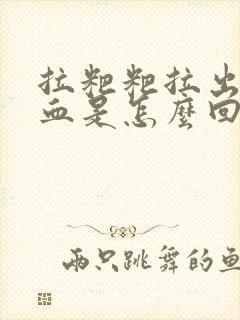 拉粑粑拉出
血是怎麼回
兩只跳舞的魚